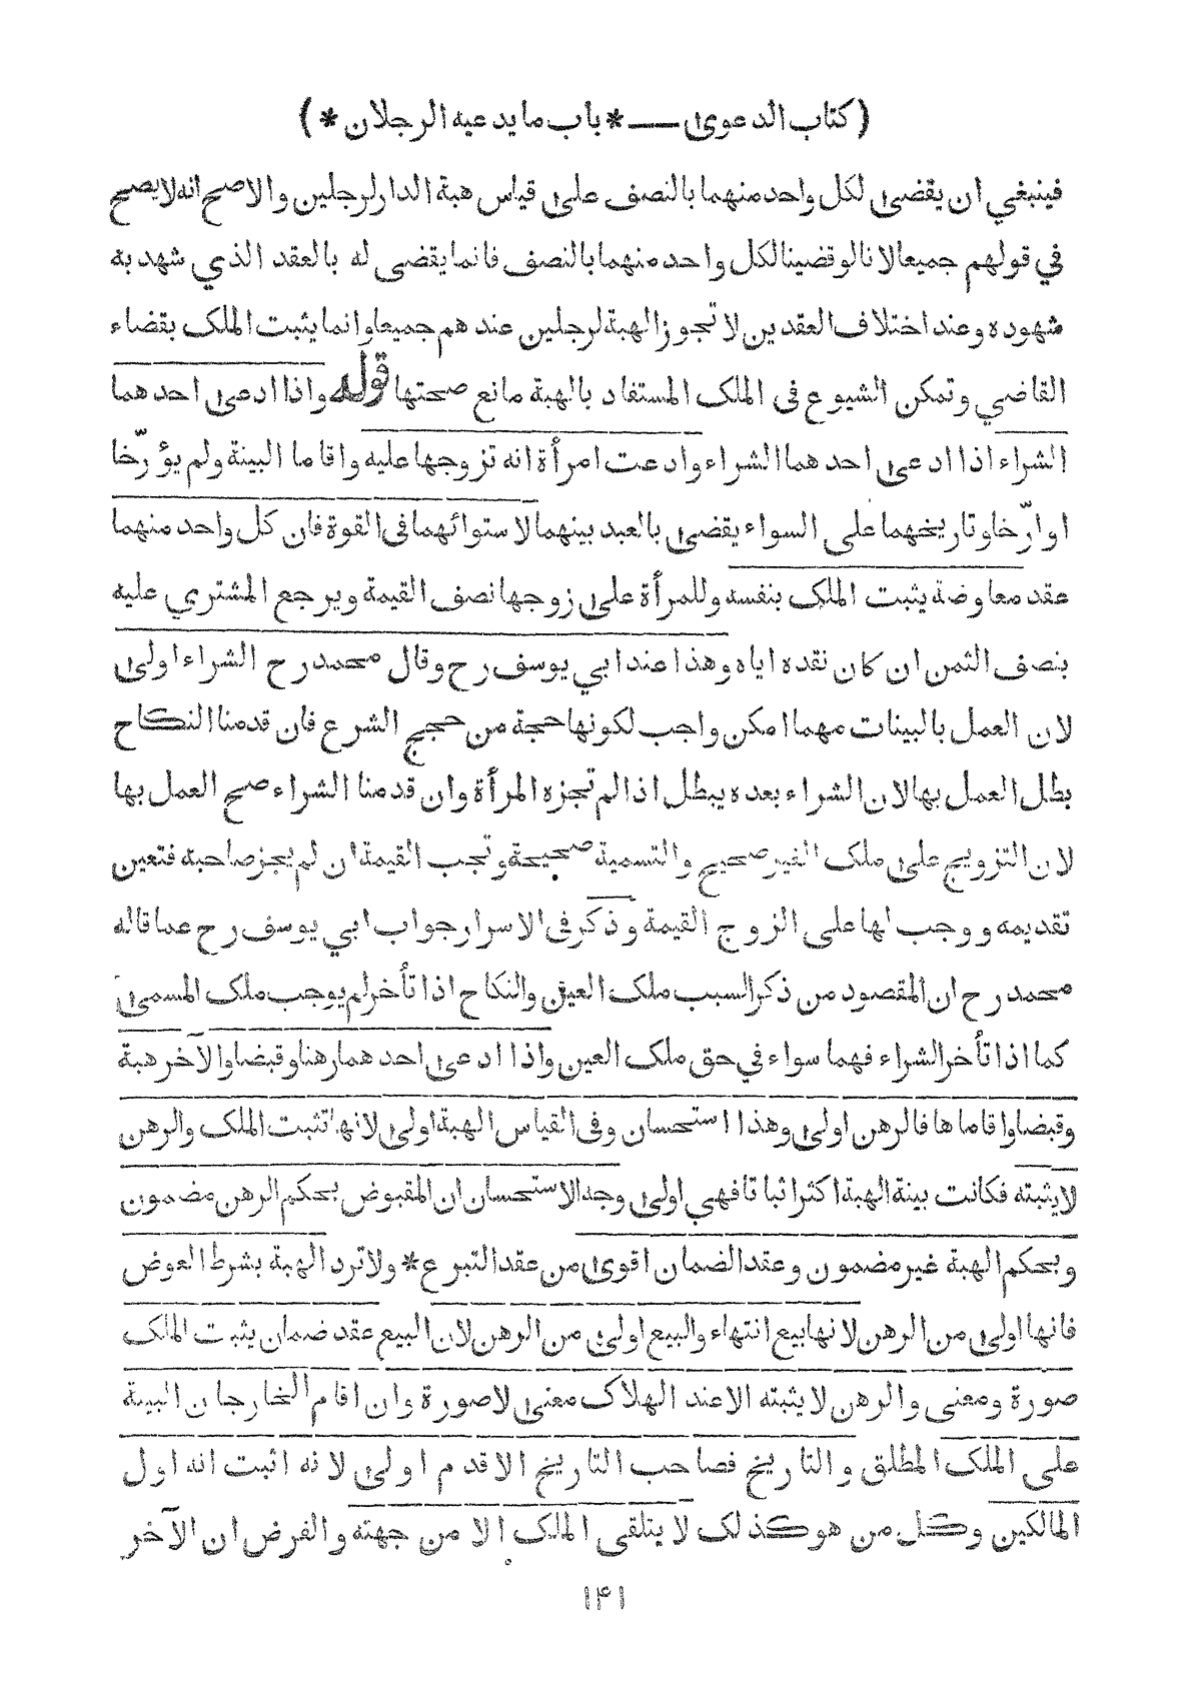 (كتاب الدعوى — * باب ما يدعيه الرجلان *)
فينبغي ان يقضى لكل واحد منهما بالنصف على قياس هبة الدار لرجلين والاصح انه لا يصح
في قولهم جميعا لانا لو قضينا لكل واحد منهما بالنصف فانما يقضى له بالعقد الذي شهد به
شهوده وعند اختلاف العقدين لا تجوز الهبة لرجلين عندهم جميعا وانما يثبت الملك بقضاء
القاضي وتمكن الشيوع فى الملك المستفاد بالهبة مانع صحتها قوله واذا ادعى احدهما
الشراء اذا ادعى احدهما الشراء وادعت امرأة انه تزوجها عليه واقاما البينة ولم يؤرّخا
او ارّخا وتاريخهما على السواء يقضى بالعبد بينهما لاستوائهما فى القوة فان كل واحد منهما
عقد معاوضة يثبت الملك بنفسه وللمرأة على زوجها نصف القيمة ويرجع المشتري عليه
بنصف الثمن ان كان نقده اياه وهذا عند ابي يوسف رح وقال محمد رح الشراء اولى
لان العمل بالبينات مهما امكن واجب لكونها حجة من حجج الشرع فان قدمنا النكاح
بطل العمل بها لان الشراء بعده يبطل اذا لم تجزه المرأة وان قدمنا الشراء صح العمل بها
لان التزويج على ملك الغير صحيح والتسمية صحيحة وتجب القيمة ان لم يجز صاحبه فتعين
تقديمه ووجب لها على الزوج القيمة وذكر فى الاسرار جواب ابي يوسف رح عما قاله
محمد رح ان المقصود من ذكر السبب ملك العين والنكاح اذا تأخر لم يوجب ملك المسمى
كما اذا تأخر الشراء فهما سواء في حق ملك العين واذا ادعى احدهما رهنا وقبضا والآخر هبة
وقبضا واقاماها فالرهن اولى وهذا استحسان وفى القياس الهبة اولى لانها تثبت الملك والرهن
لا يثبته فكانت بينة الهبة اكثر اثباتا فهي اولى وجه الاستحسان ان المقبوض بحكم الرهن مضمون
وبحكم الهبة غير مضمون وعقد الضمان اقوى من عقد التبرع * ولا ترد الهبة بشرط العوض
فانها اولى من الرهن لانها بيع انتهاء والبيع اولى من الرهن لان البيع عقد ضمان يثبت الملك
صورة ومعنى والرهن لا يثبته الا عند الهلاك معنى لا صورة وان اقام الخارجان البينة
على الملك المطلق والتاريخ فصاحب التاريخ الاقدم اولى لانه اثبت انه اول
المالكين وكل من هو كذلك لا يتلقى الملك الا من جهته والفرض ان الآخر
۱۴۱